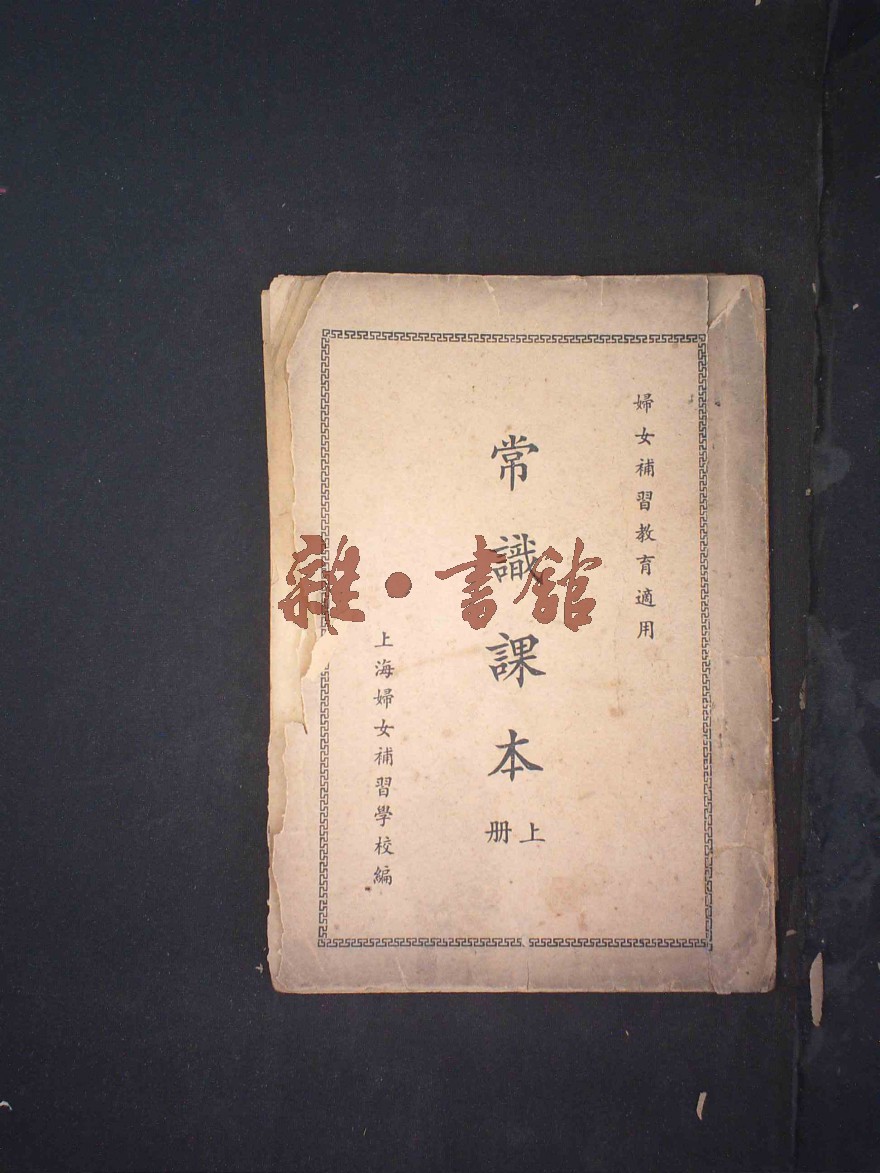 婦女補習教育適用
常識課本
上册
上海婦女補習學校編
雜·書館